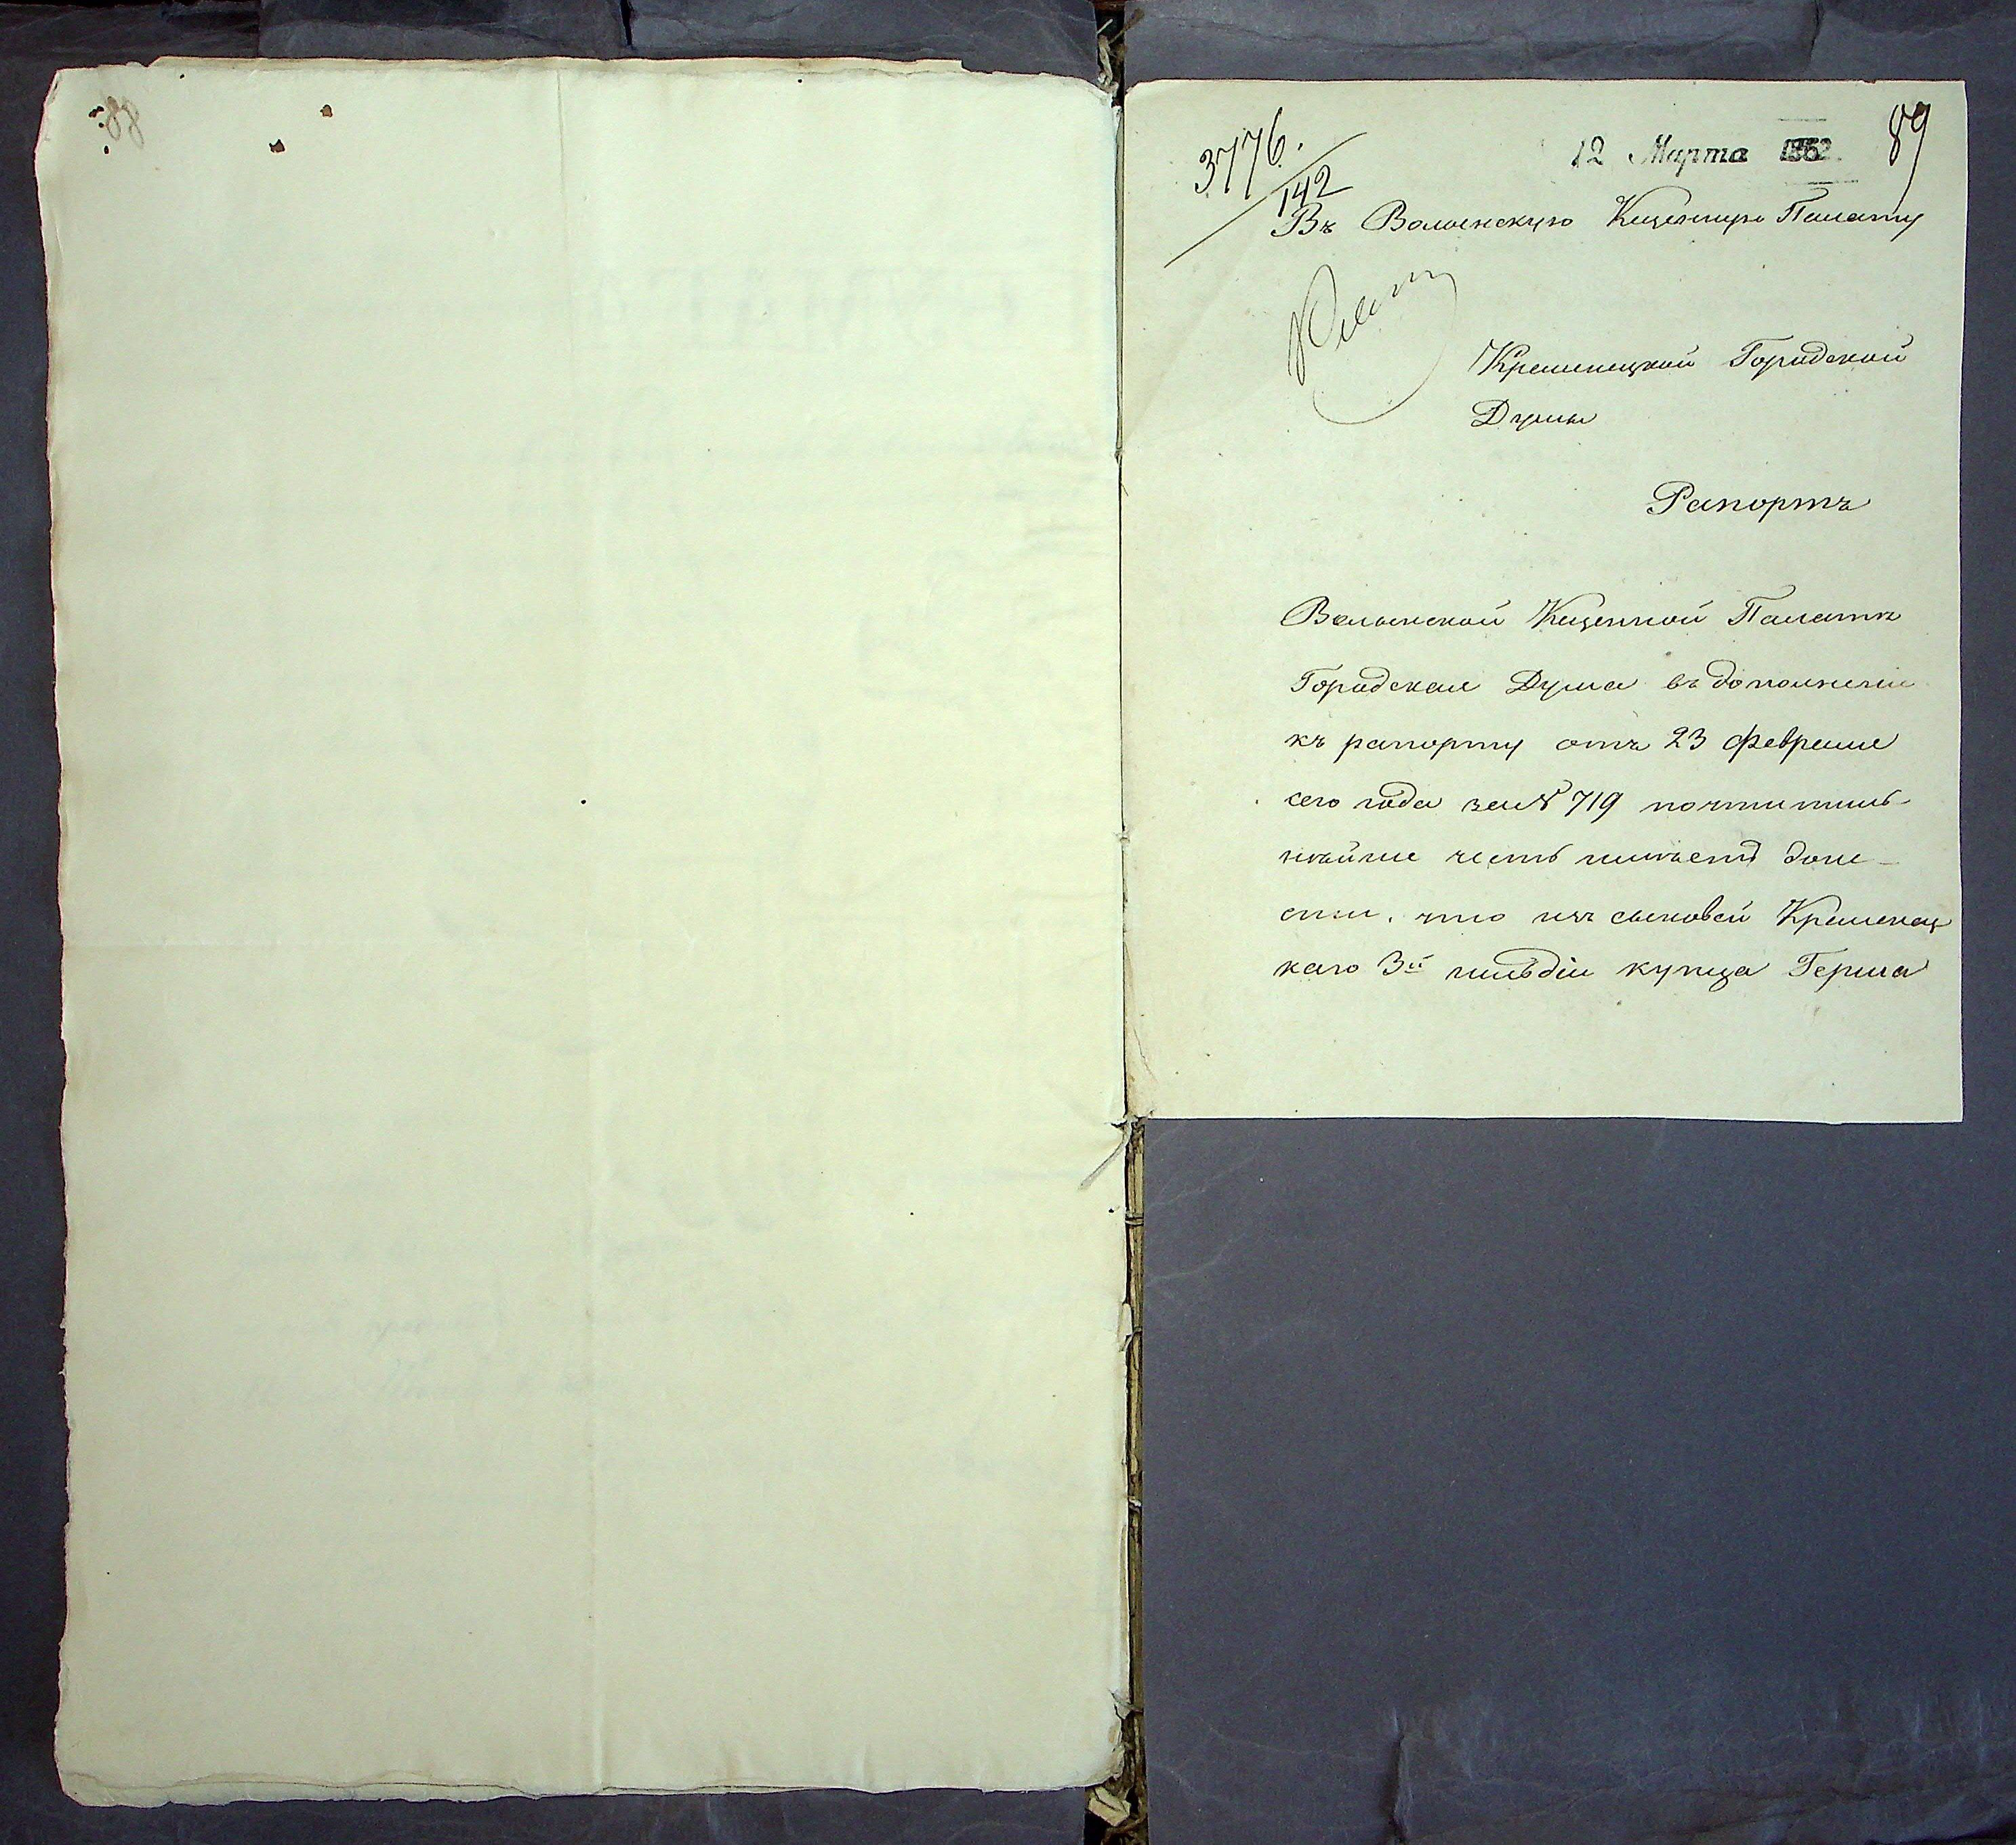 3776.
142
12 Марта 1852
89
Въ Волынскую Казенную Палату
Кременецкой Городской
Думы
Рапортъ
Волынской Казенной Палатѣ
Городская Дума въ дополненіи
къ рапорту отъ 23 февраля
сего года за № 719 почтитель-
нѣйше честь имѣетъ доне-
сти, что изъ сыновей Кременец
каго 3й гильдіи купца Герша